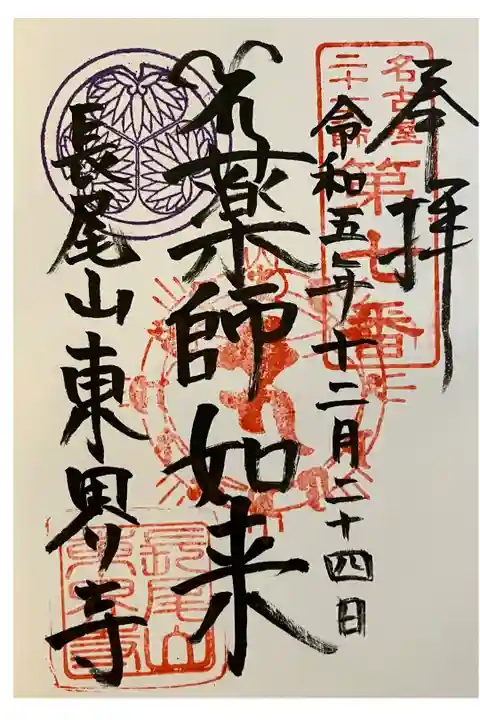 奉拝
名古屋
二十一大師
第七番
令和五年十二月二十四日
薬師如来
長尾山東界寺